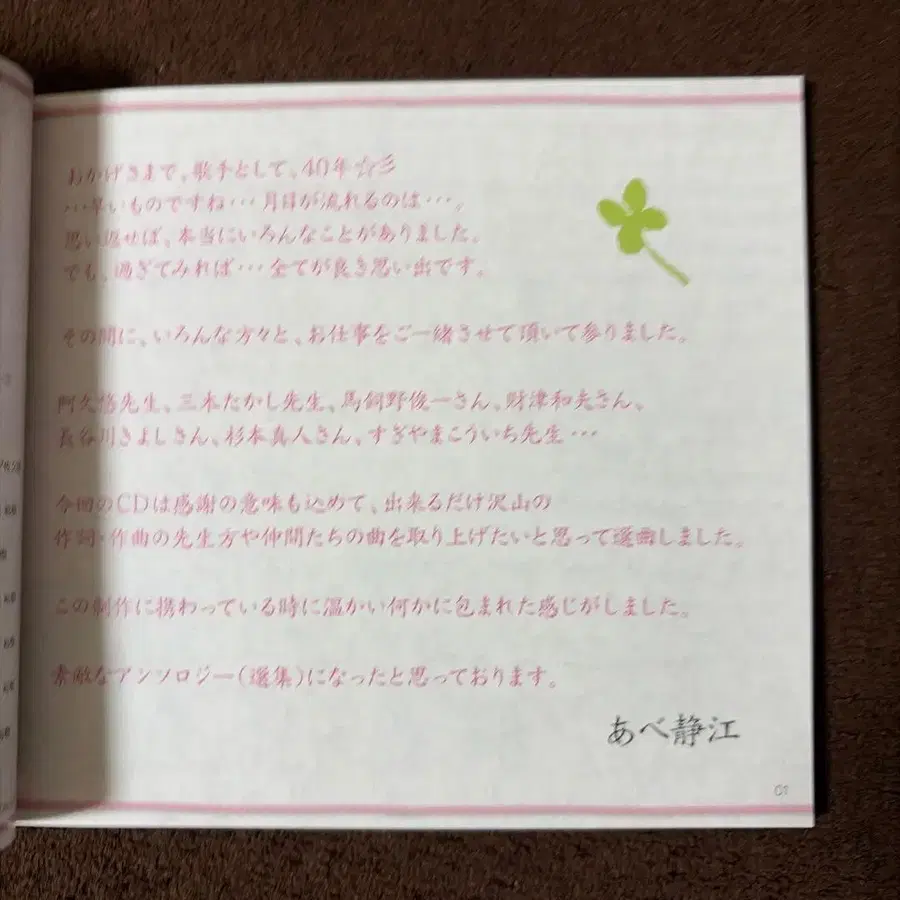 おかげさまで、歌手として、40年☆彡
…早いものですね…月日が流れるのは…。
思い返せば、本当にいろんなことがありました。
でも、過ぎてみれば…全てが良き思い出です。
その間に、いろんな方々と、お仕事をご一緒させて頂いて参りました。
阿久悠先生、三木たかし先生、馬飼野俊一さん、財津和夫さん、
長谷川きよしさん、杉本真人さん、すぎやまこういち先生…
今回のCDは感謝の意味も込めて、出来るだけ沢山の
作詞・作曲の先生方や仲間たちの曲を取り上げたいと思って選曲しました。
この制作に携わっている時に温かい何かに包まれた感じがしました。
素敵なアンソロジー(選集)になったと思っております。
あべ静江